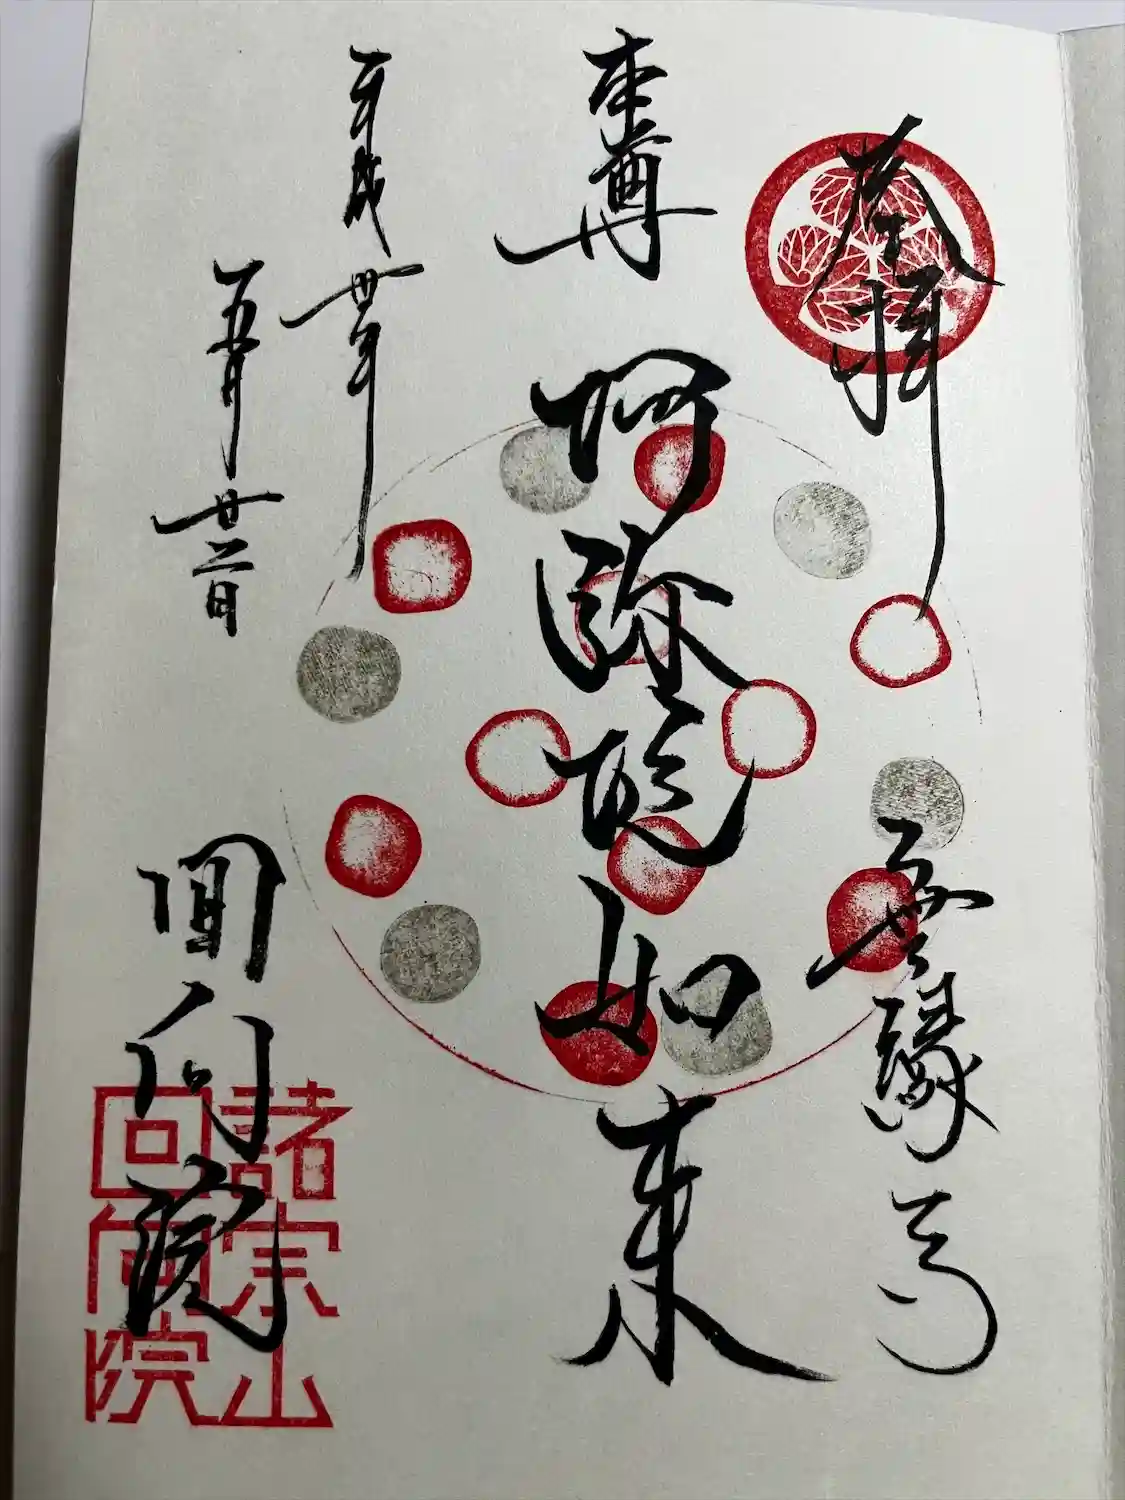 奉拝
無縁寺
本尊
阿弥陀如来
平成卅年
五月廿二日
回向院
諸宗山
回向院